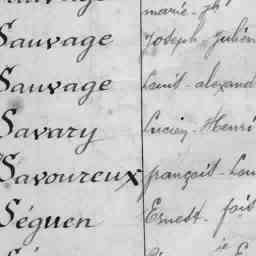 Sauvage marie-jh
Sauvage Joseph-Julien
Sauvage Louis-alexand
Savary Lucien-Henri
Savoureux françois-Lou
Séguen Ernest-